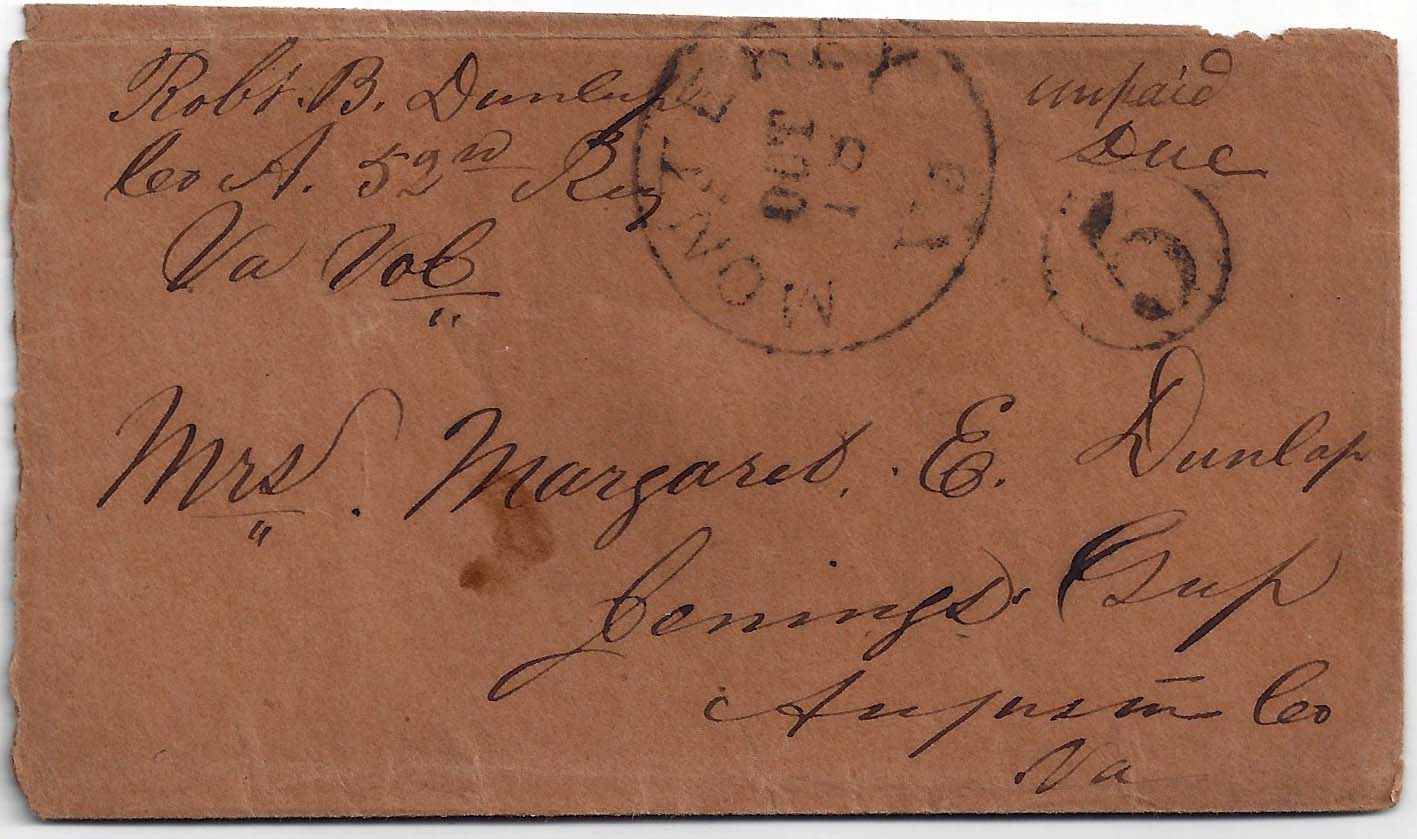 Robt. B. Dunlap
Co A. 52nd Reg
Va Vol
MONTEREY
OCT
18
Va
unpaid
Due
5
Mrs. Margaret. E. Dunlap
Jenings Gap
Augusta Co
Va